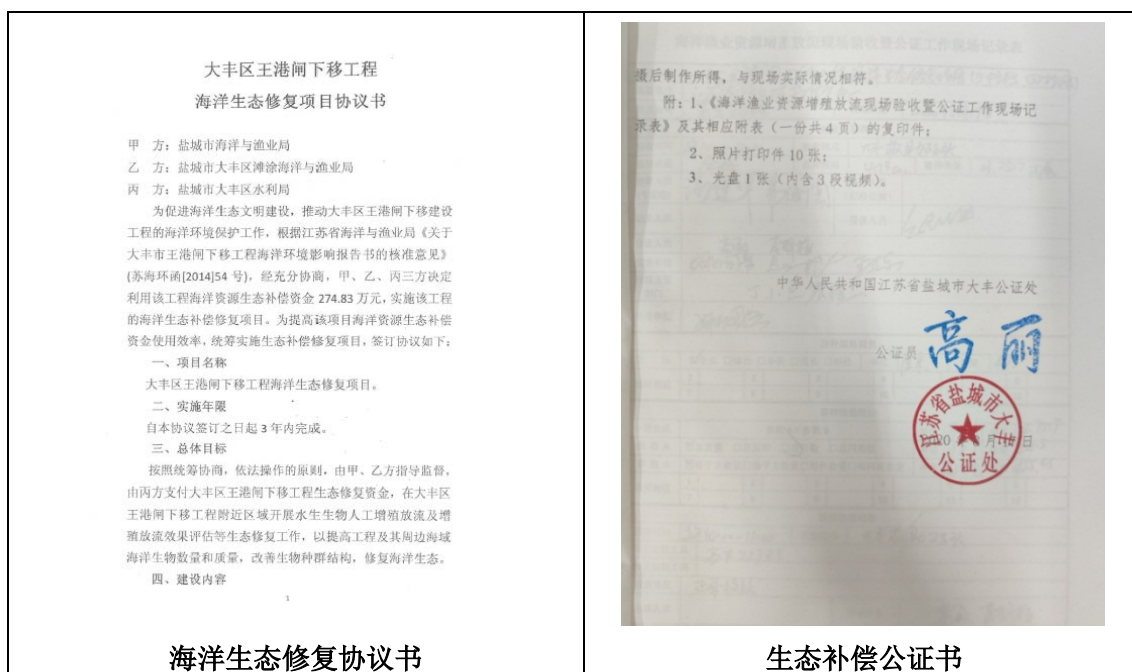 大丰区王港闸下移工程
海洋生态修复项目协议书
甲　方：盐城市海洋与渔业局
乙　方：盐城市大丰区滩涂海洋与渔业局
丙　方：盐城市大丰区水利局
为促进海洋生态文明建设，推动大丰区王港闸下移建设
工程的海洋环境保护工作，根据江苏省海洋与渔业局《关于
大丰市王港闸下移工程海洋环境影响报告书的核准意见》
(苏海环函[2014]54 号)，经充分协商，甲、乙、丙三方决定
利用该工程海洋资源生态补偿资金 274.83 万元，实施该工程
的海洋生态补偿修复项目。为提高该项目海洋资源生态补偿
资金使用效率，统筹实施生态补偿修复项目，签订协议如下：
一、项目名称
大丰区王港闸下移工程海洋生态修复项目。
二、实施年限
自本协议签订之日起 3 年内完成。
三、总体目标
按照统筹协商，依法操作的原则，由甲、乙方指导监督，
由丙方支付大丰区王港闸下移工程生态修复资金，在大丰区
王港闸下移工程附近区域开展水生生物人工增殖放流及增
殖放流效果评估等生态修复工作，以提高工程及其周边海域
海洋生物数量和质量，改善生物种群结构，修复海洋生态。
四、建设内容
1
海洋生态修复协议书
摄后制作所得，与现场实际情况相符。
附：1、《海洋渔业资源增殖放流现场验收暨公证工作现场记
录表》及其相应附表（一份共 4 页）的复印件；
2、照片打印件 10 张；
3、光盘 1 张（内含 3 段视频）。
中华人民共和国江苏省盐城市大丰公证处
公证员 高丽
江苏省盐城市大丰
公证处
生态补偿公证书